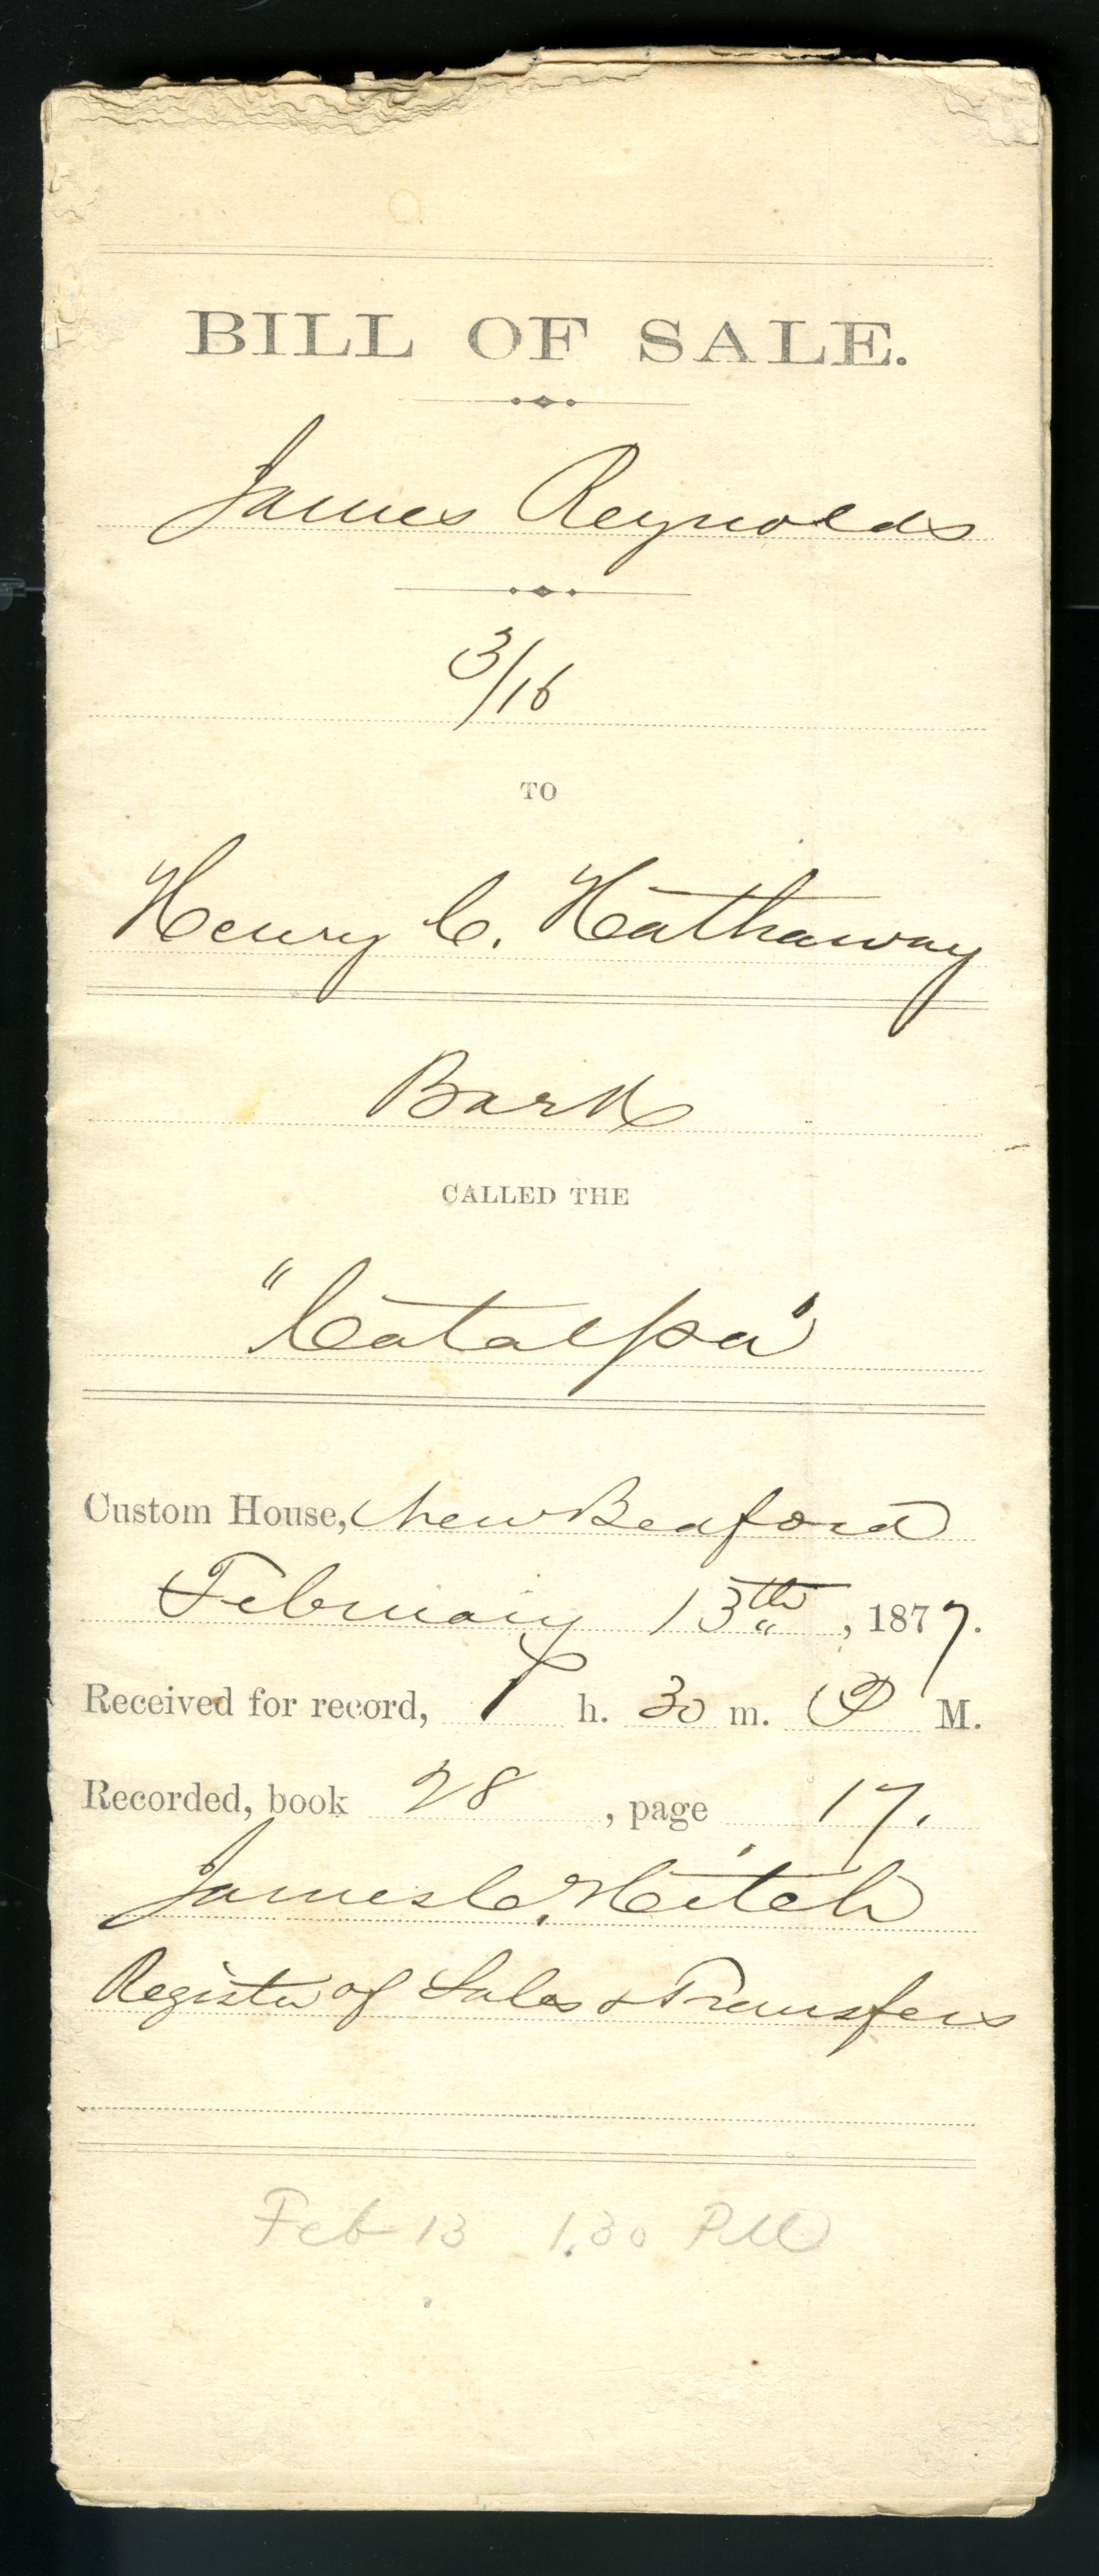 BILL OF SALE.
James Reynolds
3/16
TO
Henry C. Hathaway
Bark
CALLED THE
"Catalpa"
Custom House, New Bedford
February 13th, 1877.
Received for record, 1 h. 30 m. P M.
Recorded, book 28, page 17.
James C. Hitch
Register of Sales & Transfers
Feb 13 1.30 PM